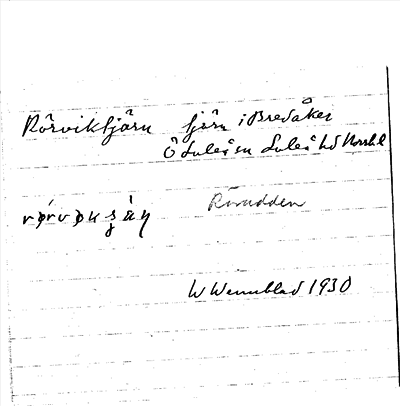 Rörviktjärn tjärn i Bredåker
Ö Luleå sn Luleå hd Norrb l
Rörudden
W Wennblad 1930